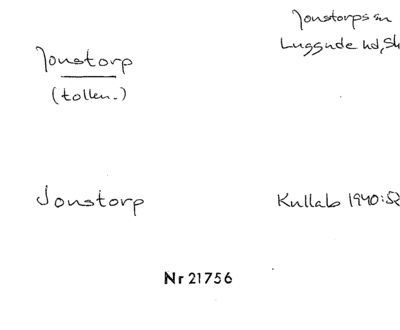 Jonstorps sn
Luggude hd, Sk
Jonstorp
(tollen.)
Jonstorp
Kullab 1940:52
Nr 21756